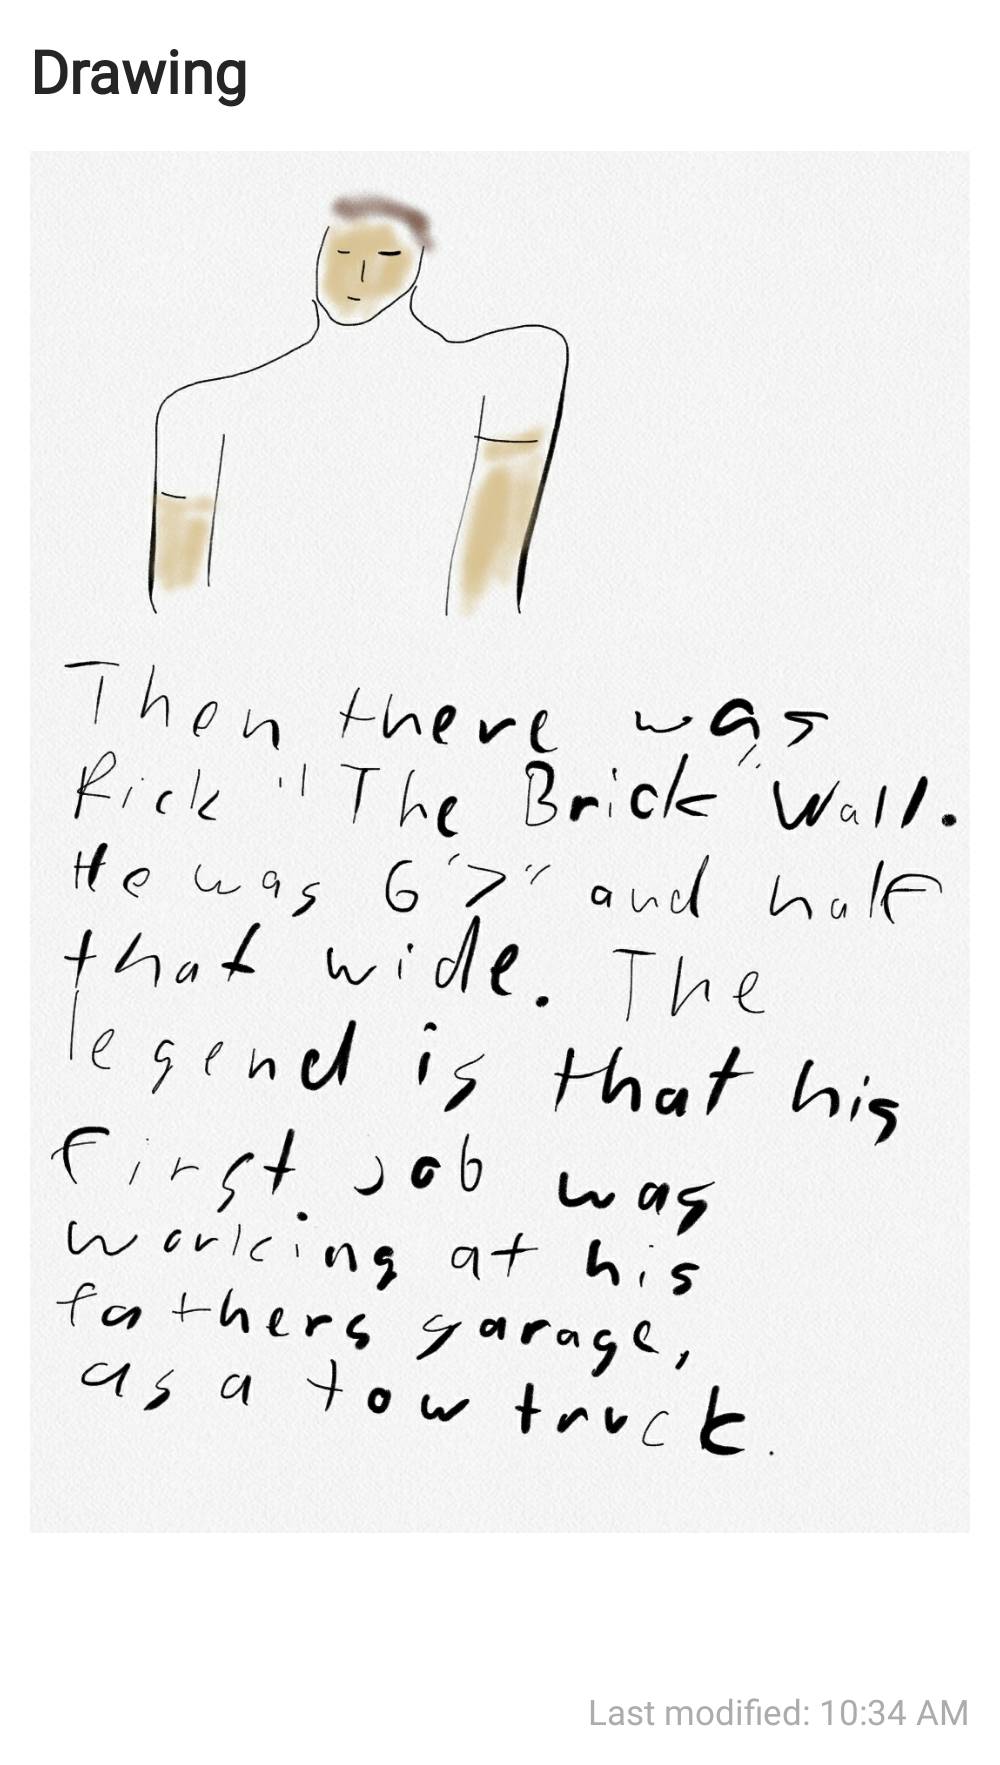 Drawing
Then there was
Rick "The Brick" Wall.
He was 6'7" and half
that wide. The
legend is that his
first job was
working at his
fathers garage,
as a tow truck.
Last modified: 10:34 AM